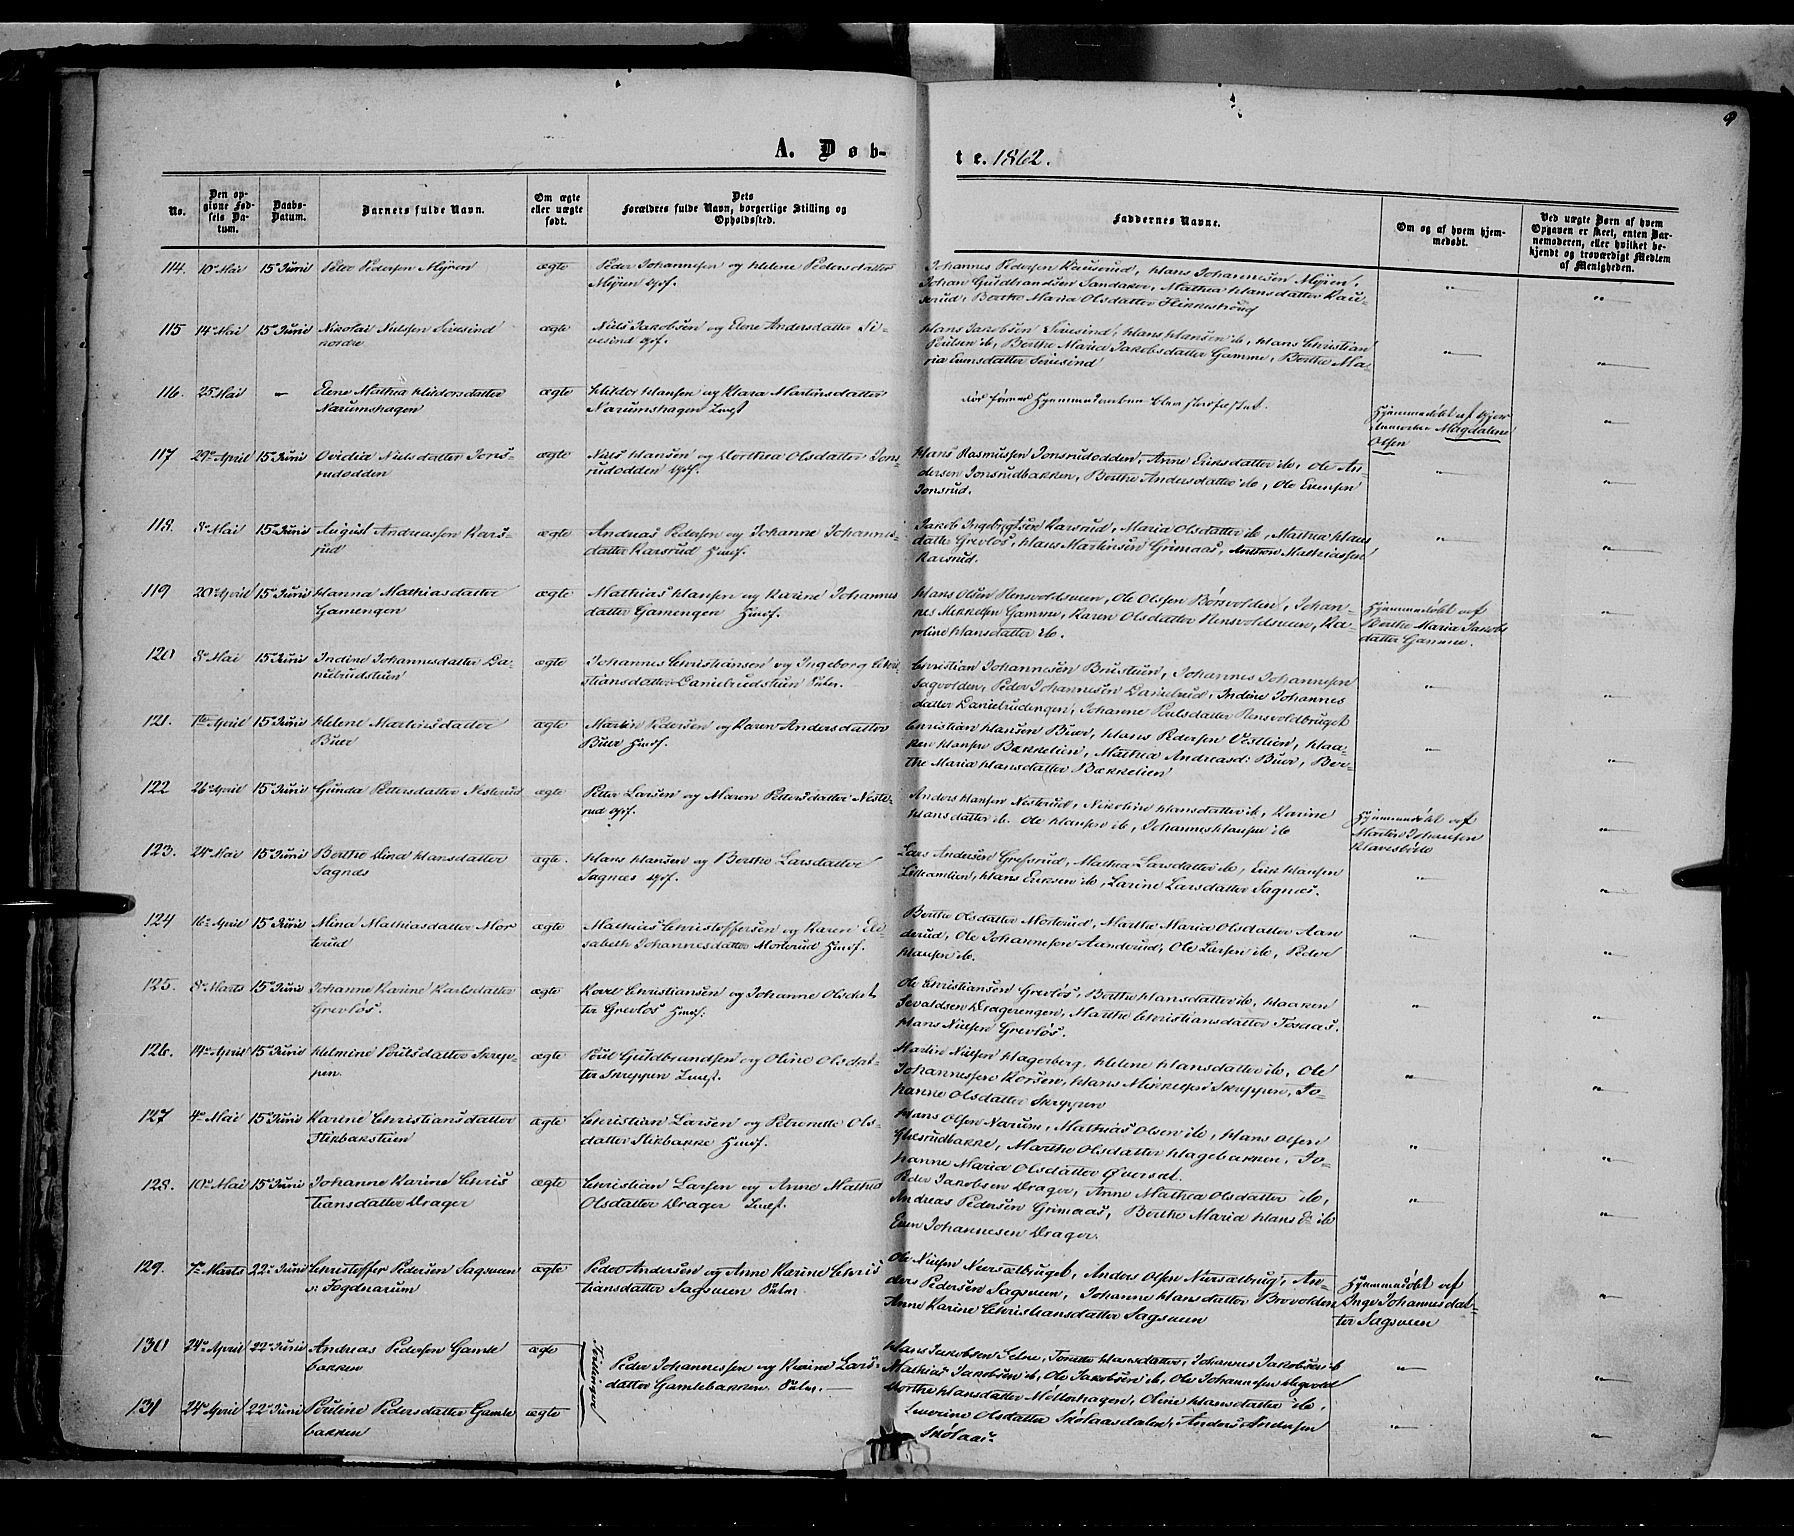 9
A. Døb-
te. 1862.
No.
Den op-
givne Fød-
sels Da-
tum.
Daabs-
Datum.
Barnets fulde Navn.
Om ægte
eller uægte
født.
Dets
Forældres fulde Navn, borgerlige Stilling og
Opholdssted.
Faddernes Navne.
Om og af hvem hjem-
medøbt.
Ved uægte Børn af hvem
Opgaven er skeet, enten Bar-
nemoderen, eller hvilket be-
kjendt og troværdigt Medlem
af Menigheden.
114. 10de Mai 15de Juni Peter Pedersen Myren ægte Peder Johannesen og Helene Pedersdatter
Myren
Johannes Pedersen Hans Johannesen Myren,
Johan Guldbrandsen Sandaker, Mathea Hansdatter
Berthe Maria Olsdatter
115 14de Mai 15de Juni Nikolai Nielsen Sivesind
nordre
ægte Niels Jakobsen og Elene Andersdatter Si-
vesind
Hans Jakobsen Sivesind, Hans Hansen ib, Hans Christian
Poulsen ib, Berthe Maria Jakobsdatter Gamme, Berthe Ma-
ria Evensdatter Sivesind
116. 25de Mai – Elene Mathea Hildorsdatter
Narumshagen
ægte Hildor Hansen og Klara Martinsdatter
Narumshagen
Hjemmedaaben blev
Hjemmedøbt af
Magdalene
Olsen
117 29de April 15de Juni Ovidia Nielsdatter Jons-
rudodden
ægte Niels Hansen og Dorthea Olsdatter Jons-
rudodden
Hans Rasmussen Jonsrudodden, Anne Eriksdatter ib, Ole An-
dersen Jonsrudbakken, Berthe Andersdatter ib, Ole Evensen
Jonsrud.
118. 8de Mai 15de Juni August Andreassen Kars-
rud
ægte Andreas Pedersen og Johanne Johannis-
datter Karsrud
Jakob Ingebrigtsen Karsrud, Maria Olsdatter ib, Mathea Hans
datter Grevløs, Hans Martinsen Grimaas, Mathiassen
Karsrud.
119 20de April 15de Juni Hanna Mathiasdatter
Gamengen
ægte Mathias Hansen og Karine Johannes
datter Gamengen
Hans Olsen Rensvoldsveen, Ole Olsen Børsvolden, Johan-
nes Mikkelsen Gamme, Karen Olsdatter Rensvoldsveen, Ka-
roline Hansdatter ib.
Hjemmedøbt af
Berthe Maria Jakobs
datter Gamme.
120 8de Mai 15de Juni Indine Johannesdatter Da-
nielrudstuen
ægte Johannes Christiansen og Ingeborg Chri-
stiansdatter Danielrudstuen
Christian Johannesen Brustuen, Johannes Johannesen
Sagvolden, Peder Johannesen Danielrud, Indine Johannes
datter Danielrudengen, Johanne Poulsdatter Rensvoldbruget
121. 1ste April 15de Juni Helene Martinsdatter
Buer
ægte Martin Pedersen og Karen Andersdatter
Buer
Christian Hansen Buer, Hans Pedersen Vestlien, Haa-
ken Hansen Bækkelien, Mathea Andreasd: Buer, Ber-
the Maria Hansdatter Bækkelien
122 26de April 15de Juni Gunda Pettersdatter Nesterud ægte Petter Larsen og Maren Pettersdatter Neste-
rud
Anders Hansen Nesterud, Nikoline Hansdatter ib, Karine
Hansdatter ib. Ole Hansen ib, Johannes Hansen ib
Hjemmedøbt af
Martin Johansen
123. 24de Mai 15de Juni Berthe Dina Hansdatter
Sagnæs
ægte. Hans Hansen og Berthe Larsdatter
Sagnæs
Lars Andersen Grefsrud, Mathea Larsdatter ib, Erik Hansen
Lilleamlien, Hans Eriksen ib, Larine Larsdatter Sagnæs.
124 16de April 15de Juni Mina Mathiasdatter Mor
terud
ægte Mathias Christoffersen og Karen Eli-
sabeth Johannesdatter Morterud
Berthe Olsdatter Morterud, Marthe Maria Olsdatter Aan
derud, Ole Johannesen Aanderud, Ole Larsen ib, Peder
Hansen ib.
125. 8de Marts 15de Juni Johanne Karine Karlsdatter
Grevløs.
ægte Karl Christiansen og Johanne Olsdat
ter Grevløs
Ole Christiansen Grevløs, Berthe Hansdatter ib, Haaken
Sevaldsen Dragerengen, Marthe Christiansdatter Tosaas.
Hans Nielsen Grevløs.
126. 14de April 15de Juni Helmine Poulsdatter Skrep-
pen.
ægte Poul Guldbrandsen og Oline Olsdat-
ter Skreppen
Martin Nielsen Hagerberg, Helene Hansdatter ib, Ole
Johannessen Korsen, Hans Mikkelsen Skreppen, Jo-
hanne Olsdatter Skreppen
127 4de Mai 15de Juni Karine Christiansdatter
Stikbakstuen
ægte Christian Larsen og Petronelle Ols-
datter Stikbakke
Hans Olsen Narum, Mathias Olsen ib, Hans Olsen
Marthe Olsdatter Hagebakken, Jo-
hanne Maria Olsdatter Øversal.
128. 10de Mai 15de Juni Johanne Karine Chris
tiansdatter Drager
ægte Christian Larsen og Anne Mathea
Olsdatter Drager
Peder Jakobsen Drager, Anne Mathea Olsdatter ib,
Andreas Pedersen Grimaas, Berthe Maria Hansd: ib
Even Johannesen Drager.
129. 7de Marts 22de Juni Christoffer Pedersen Sagsveen
ægte Peder Andersen og Anne Karine Chris
tiansdatter Sagsveen
Ole Nielsen Nersætbruget, Anders Olsen Nersætbrug, An-
ders Pedersen Sagsveen, Johanne Hansdatter Brovolden
Anne Karine Christiansdatter Sagsveen
Hjemmedøbt af
Inge Johannesdat-
ter Sagsveen
130 24de April 22de Juni Andreas Pedersen Gamle
bakken
ægte Tvillinger
Peder Johannessen og Karine Lars-
datter Gamlebakken
Hans Jakobsen Selne, Tonette Hansdatter, Johannes Jakobsen ib
Mathias Jakobsen ib, Ole Jakobsen ib, Ole Johannesen
131 24de April 22de Juni Pauline Pedersdatter Gamle
bakken
ægte
Dorthe Hansdatter Møllerhagen, Oline Hansdatter ib,
Severine Olsdatter Skølaasdalen, Anders Andersen
Skølaas